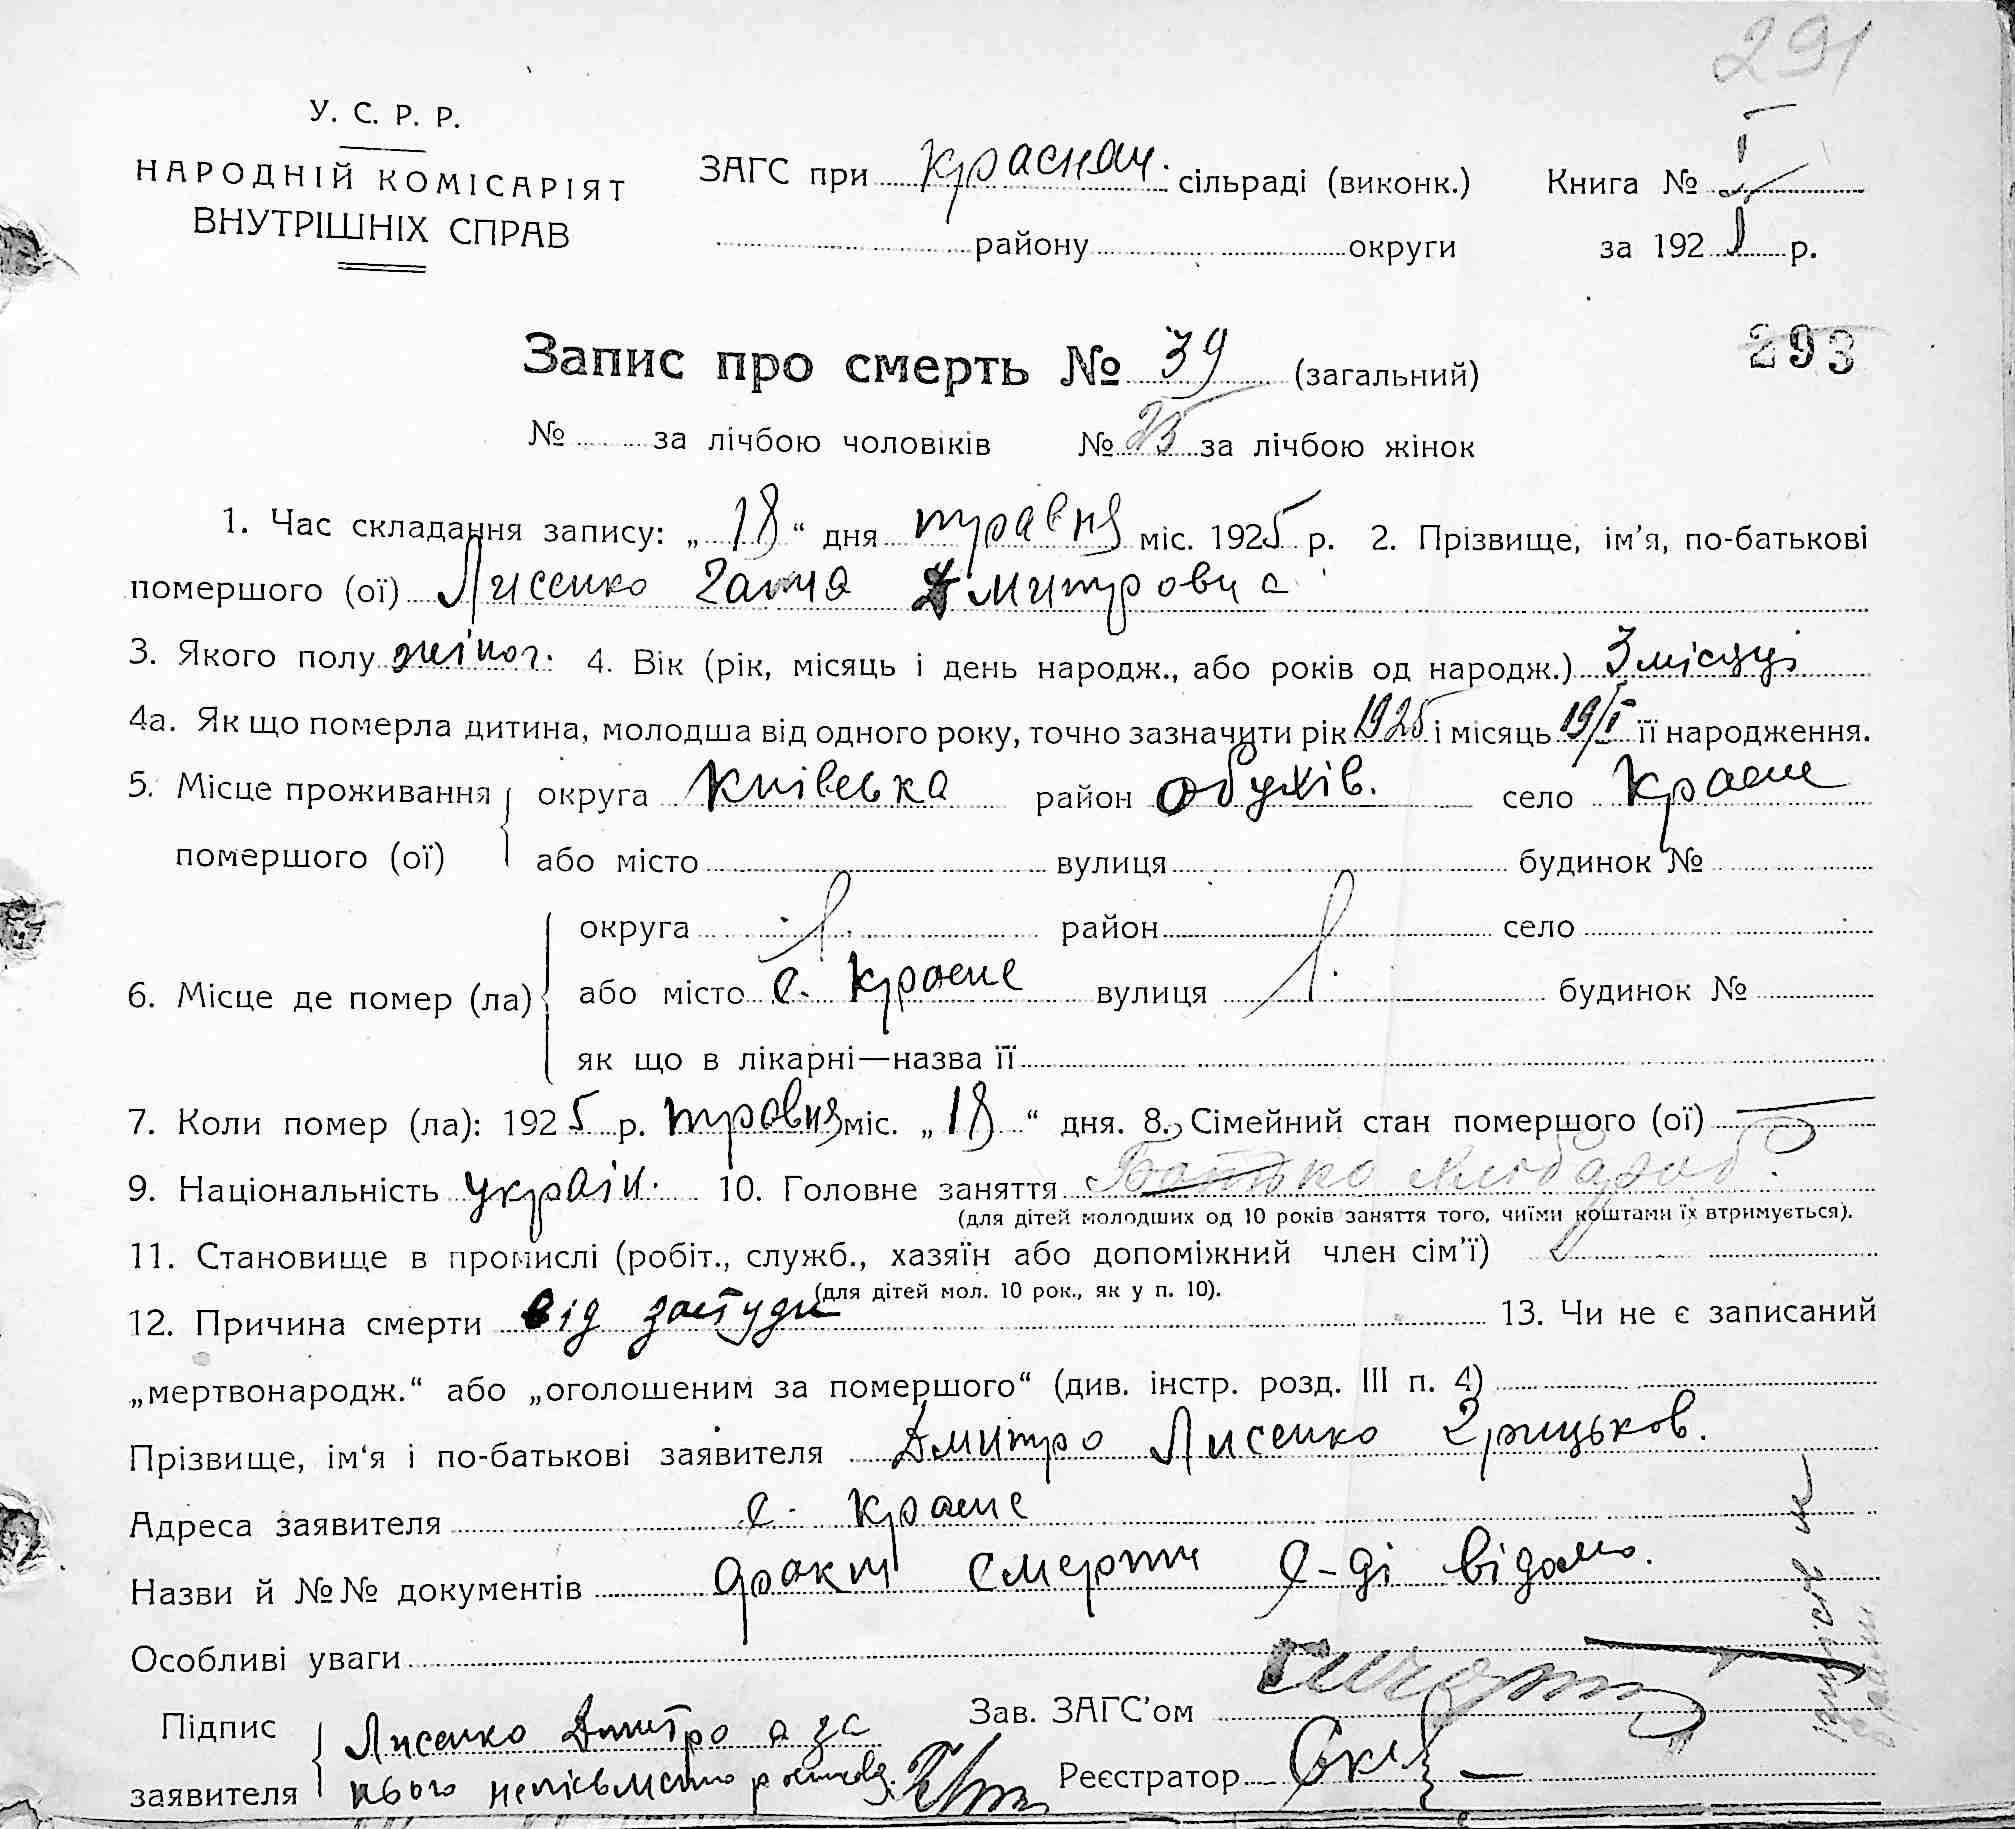 291
У. С. Р. Р.
НАРОДНІЙ КОМІСАРІЯТ
ВНУТРІШНІХ СПРАВ
ЗАГС при Краснян. сільраді (виконк.) Книга № I
району округи за 192 р.
Запис про смерть № 39 (загальний)
293
№ за лічбою чоловіків № 25 за лічбою жінок
1. Час складання запису: „18“ дня травня міс. 1925 р. 2. Прізвище, ім’я, по-батькові
помершого (ої) Лисенко Галя Дмитровна
3. Якого полу жіног. 4. Вік (рік, місяць і день народж., або років од народж.) 3 місяці
4а. Як що померла дитина, молодша від одного року, точно зазначити рік 1925 і місяць 19/I її народження.
5. Місце проживання округа Київська район Обухів. село Красне
помершого (ої) або місто вулиця будинок №
округа район село
6. Місце де помер (ла) або місто с. Красне вулиця будинок №
як що в лікарні—назва її
7. Коли помер (ла): 1925 р. травня міс. „18“ дня. 8. Сімейний стан помершого (ої) —
9. Національність україн. 10. Головне заняття Батько хлібороб
(для дітей молодших од 10 років заняття того, чиїми коштами їх втримується).
11. Становище в промислі (робіт., служб., хазяїн або допоміжний член сім’ї)
(для дітей мол. 10 рок., як у п. 10).
12. Причина смерти від застуди 13. Чи не є записаний
„мертвонародж.“ або „оголошеним за помершого“ (див. інстр. розд. III п. 4)
Прізвище, ім‘я і по-батькові заявителя Дмитро Лисенко Грицьков.
Адреса заявителя с. Красне
Назви й №№ документів факт смерти С-ді відомо.
Особливі уваги
Підпис Лисенко Дмитро а за Зав. ЗАГС’ом
заявителя нього неписьмено Реєстратор